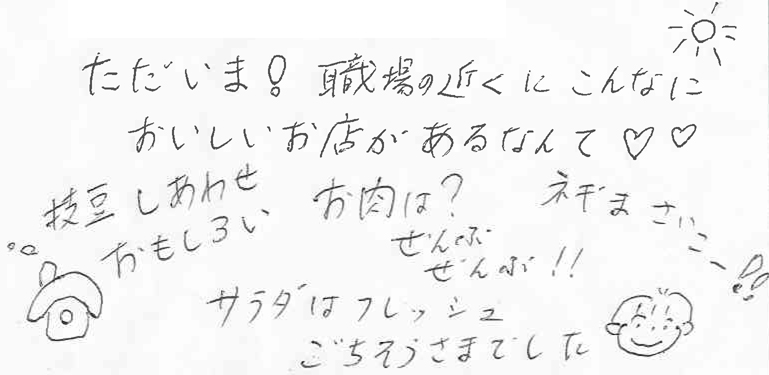 ただいま! 職場の近くに こんなに
おいしいお店があるなんて♡♡
枝豆しあわせ
おもしろい
お肉は?
ぜんぶ
ぜんぶ!!
ネギま さいこー!!
サラダはフレッシュ
ごちそうさまでした